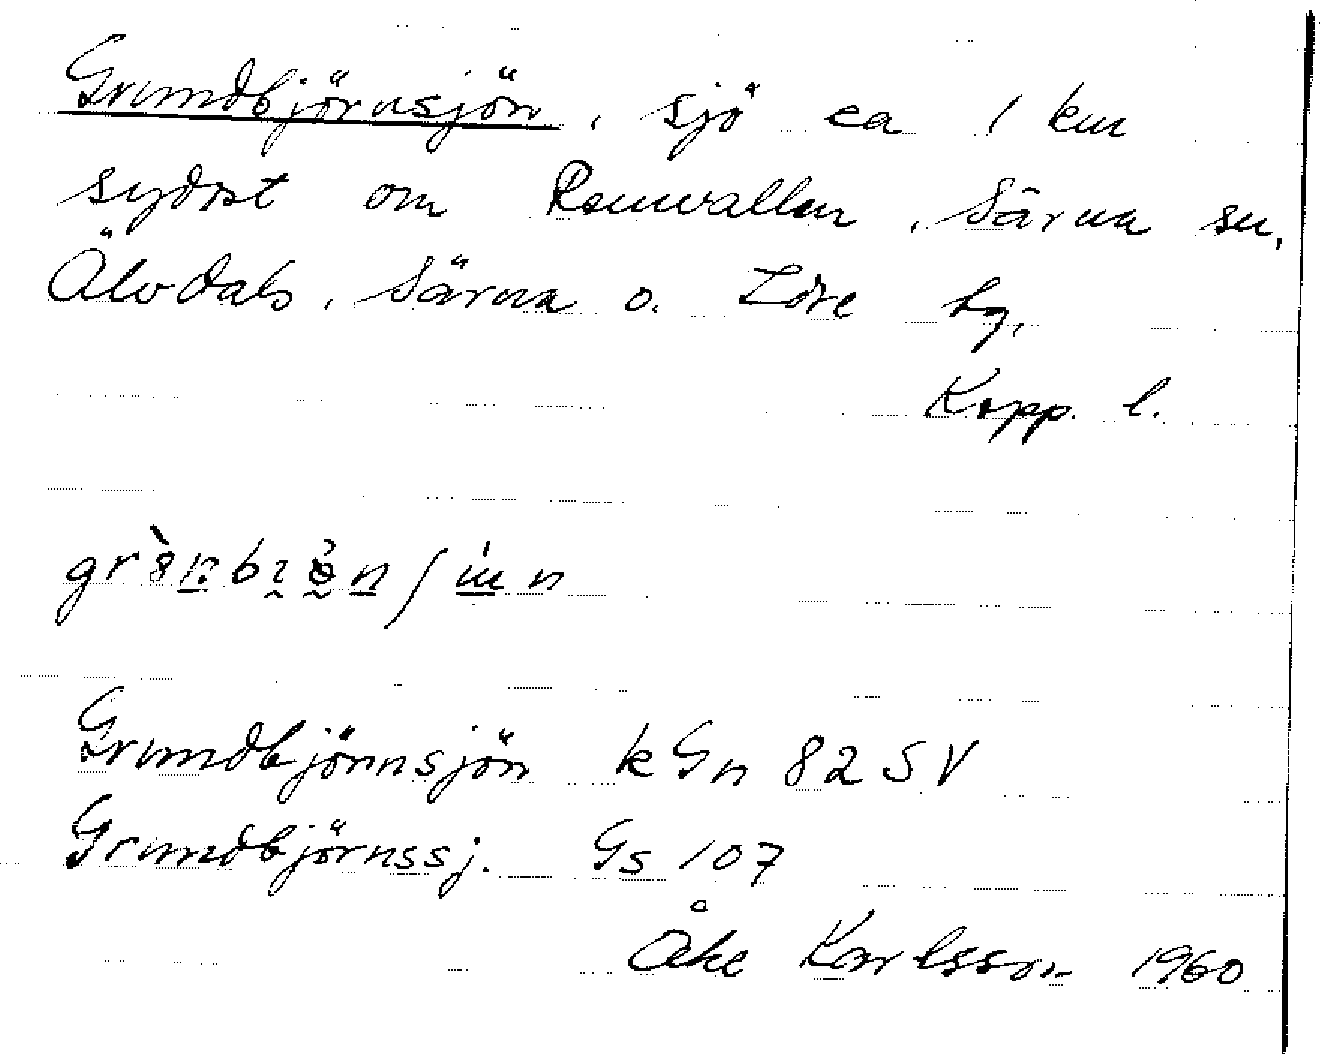 Grundbjörnsjön, sjö ca 1 km
sydost om Remvallen, Särna sn,
Älvdals, Särna o. Idre tg,
Kopp. l.
Grundbjörnsjön kGn 82 SV
Grundbjörnssj. Gs 107
Åke Karlsson 1960